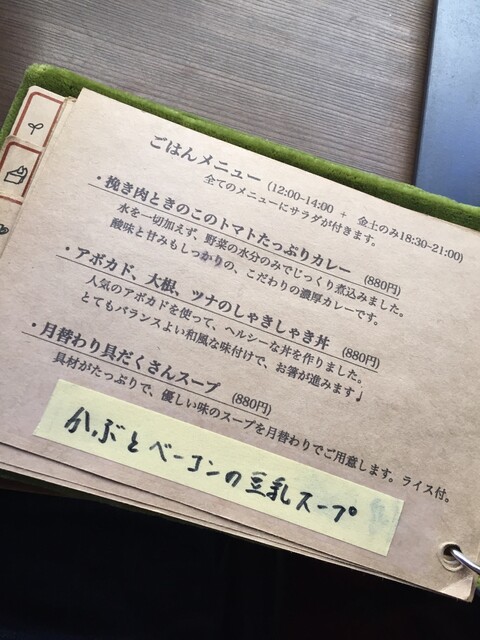 ごはんメニュー (12:00-14:00 + 金土のみ18:30-21:00)
全てのメニューにサラダが付きます。
・挽き肉ときのこのトマトたっぷりカレー (880円)
水を一切加えず、野菜の水分のみでじっくり煮込みました。
酸味と甘みもしっかりの、こだわりの濃厚カレーです。
・アボカド、大根、ツナのしゃきしゃき丼 (880円)
人気のアボカドを使って、ヘルシーな丼を作りました。
とてもバランスよい和風な味付けで、お箸が進みます♩
・月替わり具だくさんスープ (880円)
具材がたっぷりで、優しい味のスープを月替わりでご用意します。ライス付。
かぶとベーコンの豆乳スープ